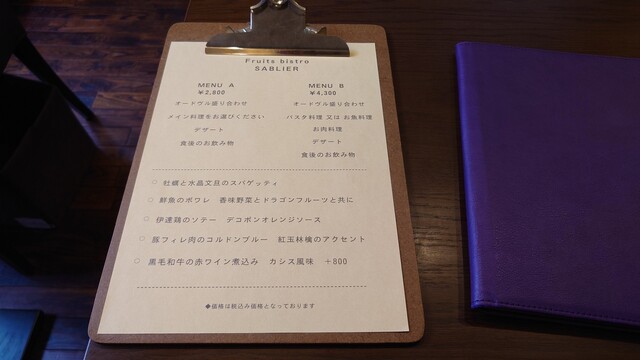 Fruits bistro
SABLIER
MENU A
¥2,800
オードヴル盛り合わせ
メイン料理をお選びください
デザート
食後のお飲み物
MENU B
¥4,300
オードヴル盛り合わせ
パスタ料理 又は お魚料理
お肉料理
デザート
食後のお飲み物
○ 牡蠣と水晶文旦のスパゲッティ
○ 鮮魚のポワレ 香味野菜とドラゴンフルーツと共に
○ 伊達鶏のソテー デコポンオレンジソース
○ 豚フィレ肉のコルドンブルー 紅玉林檎のアクセント
○ 黒毛和牛の赤ワイン煮込み カシス風味 +800
◆価格は税込み価格となっております